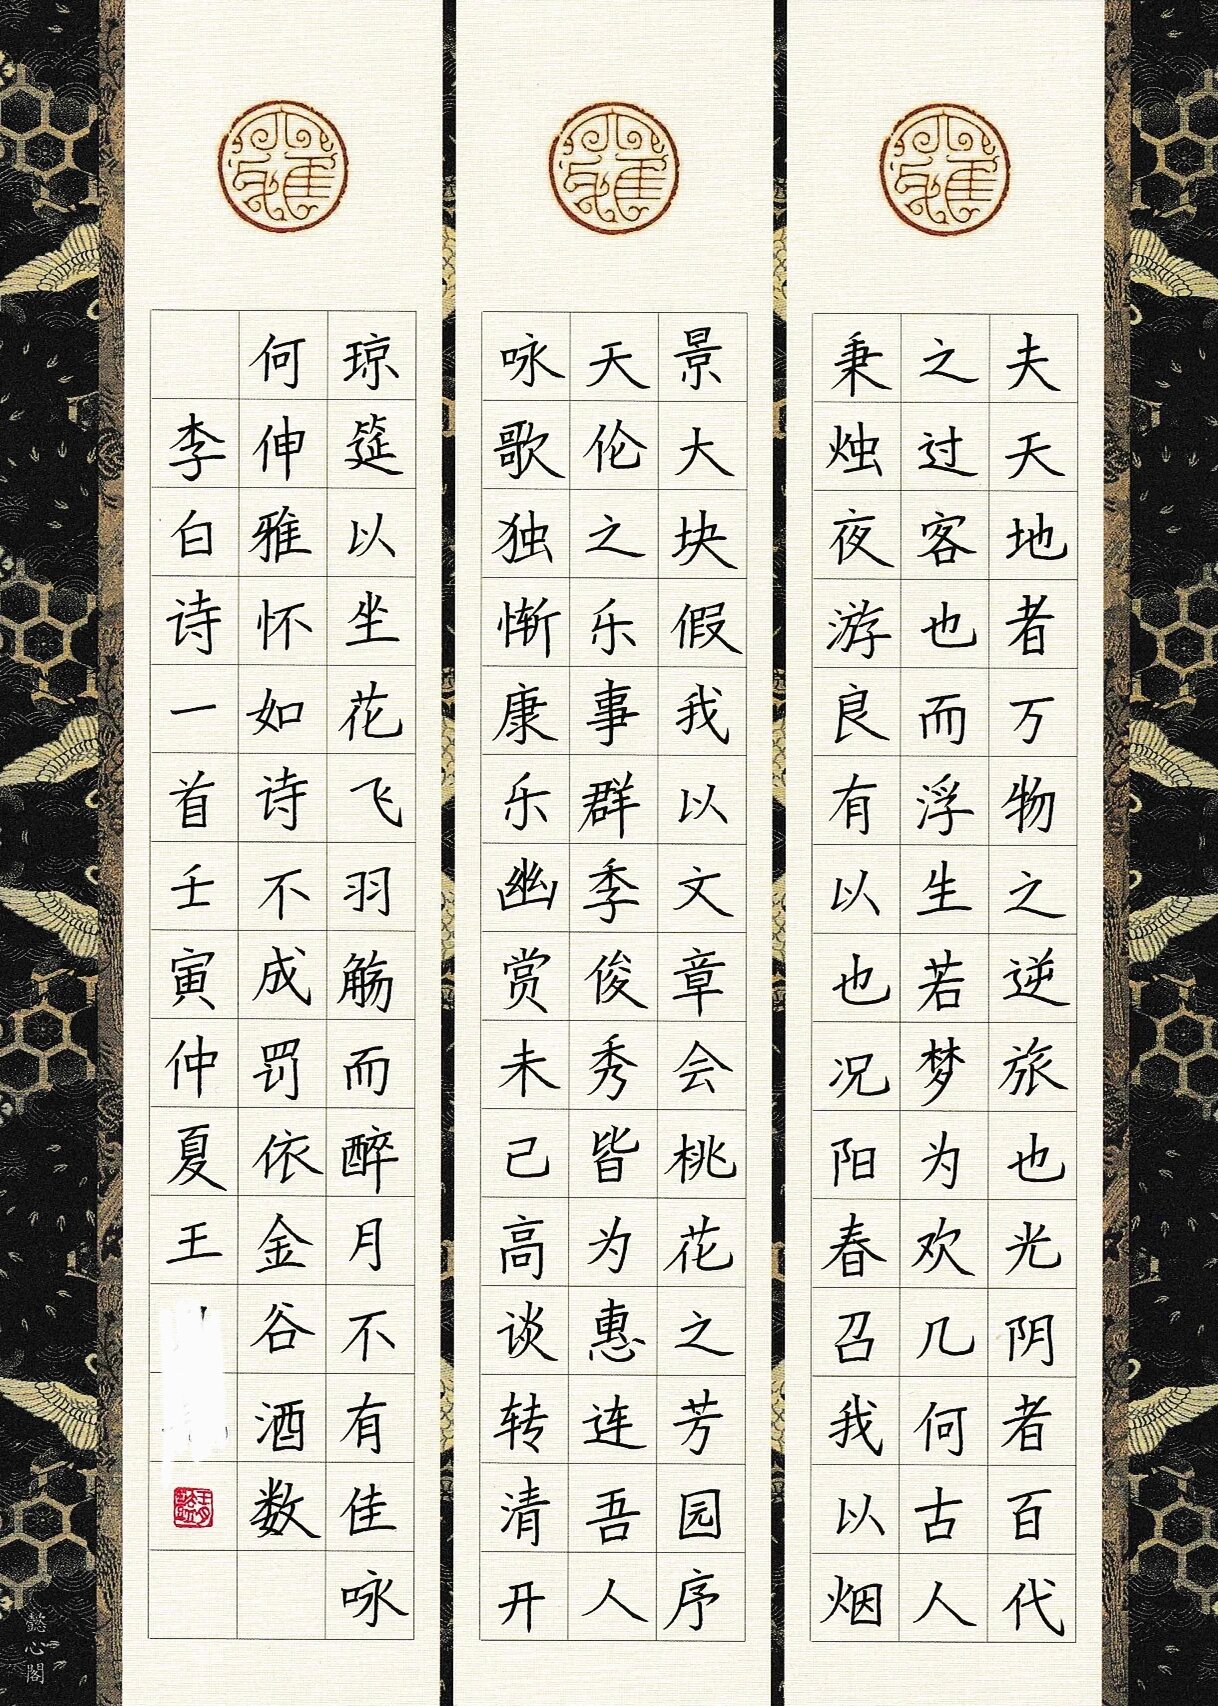 夫天地者万物之逆旅也光阴者百代
之过客也而浮生若梦为欢几何古人
秉烛夜游良有以也况阳春召我以烟
景大块假我以文章会桃花之芳园序
天伦之乐事群季俊秀皆为惠连吾人
咏歌独惭康乐幽赏未已高谈转清开
琼筵以坐花飞羽觞而醉月不有佳咏
何伸雅怀如诗不成罚依金谷酒数
李白诗一首壬寅仲夏王
懿心閣